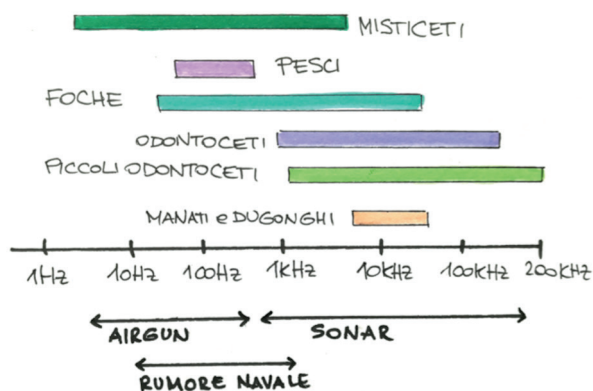 MISTICETI
PESCI
FOCHE
ODONTOCETI
PICCOLI ODONTOCETI
MANATI e DUGONGHI
1HZ 10HZ 100HZ 1KHZ 10KHZ 100KHZ 200KHZ
AIRGUN SONAR
RUMORE NAVALE